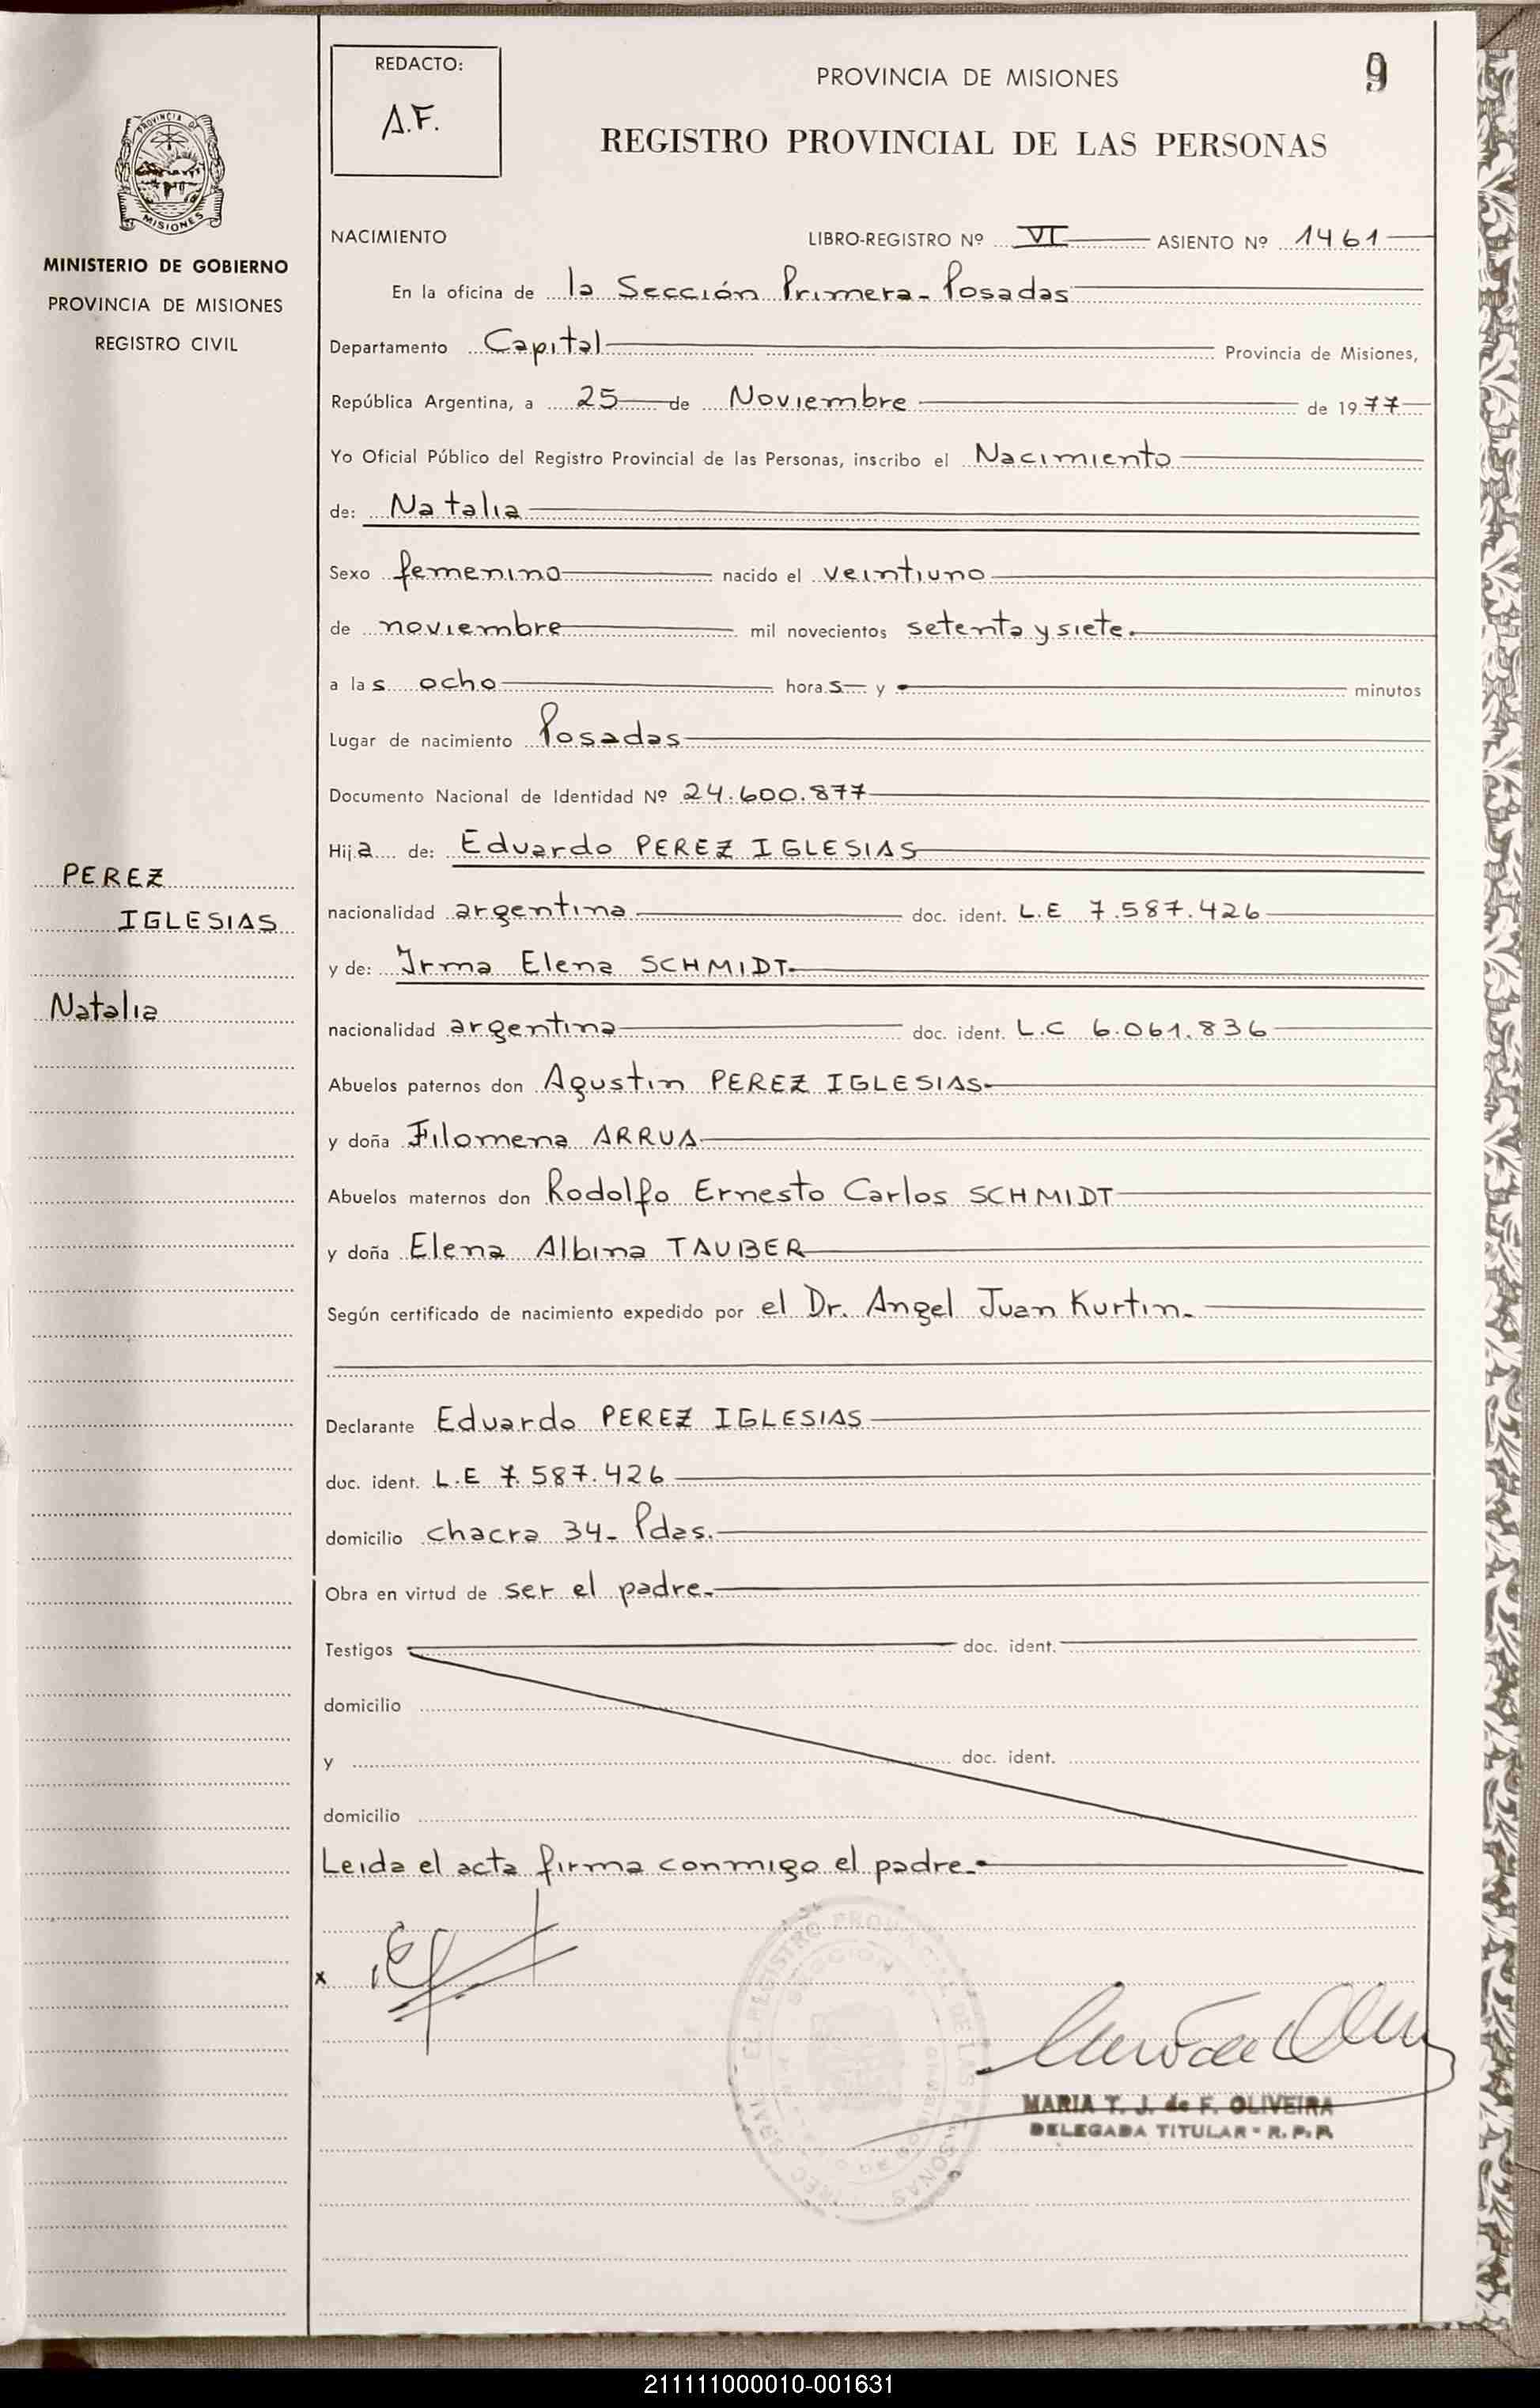 REDACTO:
A.F.
PROVINCIA DE MISIONES
9
REGISTRO PROVINCIAL DE LAS PERSONAS
PROVINCIA DE
MISIONES
MINISTERIO DE GOBIERNO
PROVINCIA DE MISIONES
REGISTRO CIVIL
NACIMIENTO LIBRO-REGISTRO Nº VI ASIENTO Nº 1461
En la oficina de la Sección Primera- Posadas
Departamento Capital Provincia de Misiones,
República Argentina, a 25 de Noviembre de 1977
Yo Oficial Público del Registro Provincial de las Personas, inscribo el Nacimiento
de: Natalia
Sexo femenino nacido el veintiuno
de noviembre mil novecientos setenta y siete.
a las ocho horas y minutos
Lugar de nacimiento Posadas
Documento Nacional de Identidad Nº 24.600.877
Hija de: Eduardo PEREZ IGLESIAS
PEREZ
IGLESIAS
Natalia
nacionalidad argentina doc. ident. L.E 7.587.426
y de: Irma Elena SCHMIDT
nacionalidad argentina doc. ident. L.C 6.061.836
Abuelos paternos don Agustin PEREZ IGLESIAS
y doña Filomena ARRUA
Abuelos maternos don Rodolfo Ernesto Carlos SCHMIDT
y doña Elena Albina TAUBER
Según certificado de nacimiento expedido por el Dr. Angel Juan Kurtin.
Declarante Eduardo PEREZ IGLESIAS
doc. ident. L.E 7.587.426
domicilio chacra 34- Pdas.
Obra en virtud de ser el padre.
Testigos doc. ident.
domicilio
y doc. ident.
domicilio
Leida el acta firma conmigo el padre.
x
MARIA T. J. de F. OLIVEIRA
DELEGADA TITULAR - R. P. P.
211111000010-001631